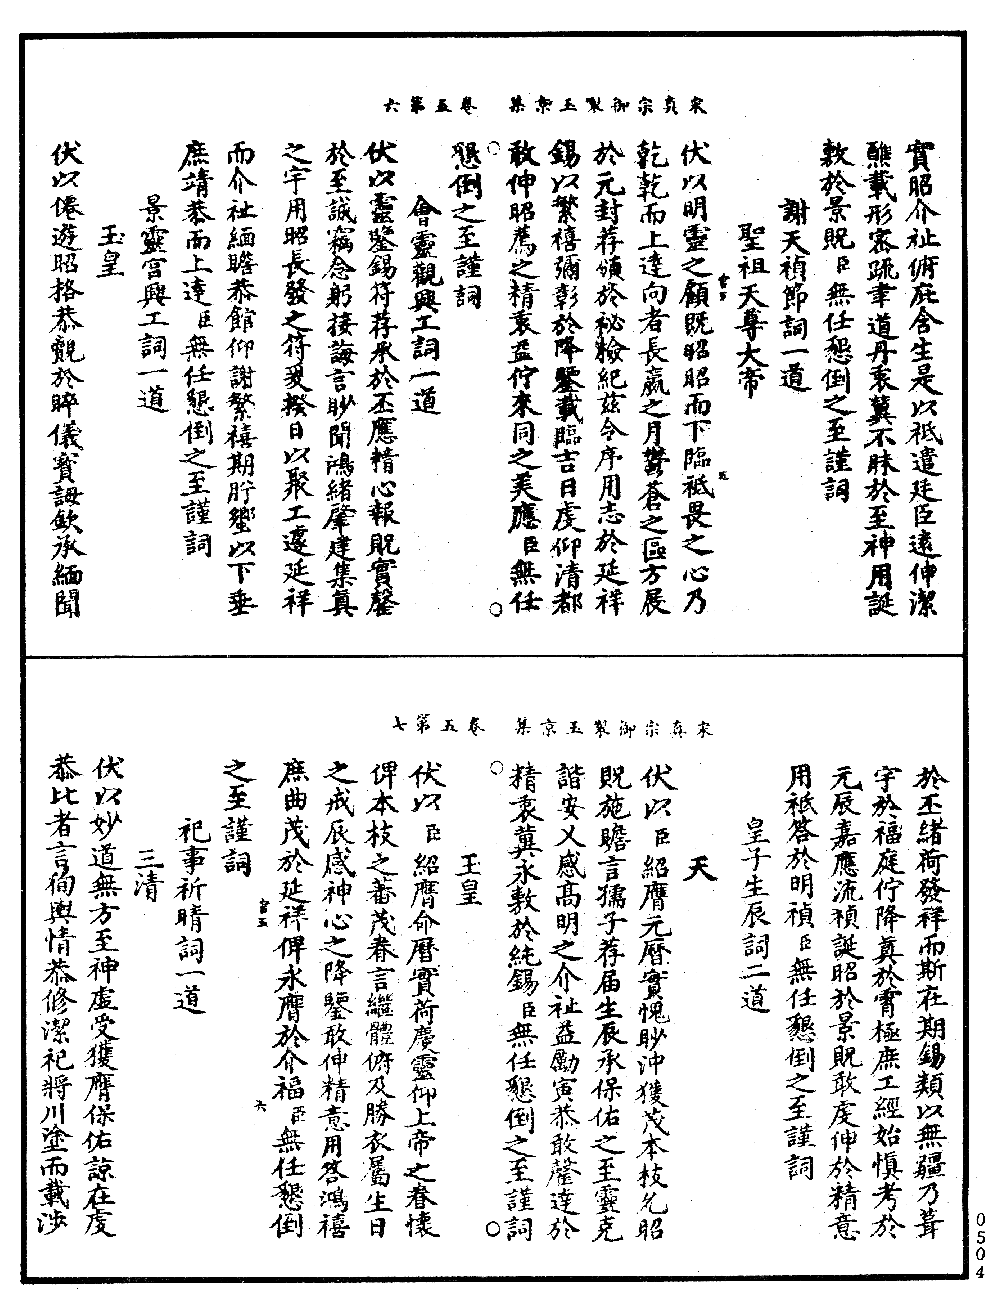 宋真宗御製玉京集　卷五第六
實昭介祉俯庇含生是以祗遣廷臣遠伸潔
醮載形寀疏聿道丹衷冀不昧於至神用誕
敷於景貺臣無任懇倒之至謹詞
謝天禎節詞一道
聖祖天尊大帝
伏以明靈之顧既昭昭而下臨祗畏之心乃
乾乾而上達向者長嬴之月鬱蒼之區方展
於元封荐頒於祕檢紀茲令序用志於延祥
錫以繁禧彌彰於降鑒載臨吉日虔仰清都
敢伸昭薦之精衷益佇來同之美應臣無任
懇倒之至謹詞
會靈觀興工詞一道
伏以靈鑒錫符荐承於丕應精心報貺實罄
於至誠竊念躬接誨言眇聞鴻緒肇建集真
之宇用昭長發之符爰揆日以聚工遽延祥
而介祉緬瞻恭館仰謝繁禧期肸蠁以下垂
庶靖恭而上達臣無任懇倒之至謹詞
景靈宮興工詞一道
玉皇
伏以僊遊昭格恭覿於睟儀寶誨欽承緬聞
宋真宗御製玉京集　卷五第七
於丕緒荷發祥而斯在期錫類以無疆乃葺
宇於福庭佇降真於霄極庶工經始慎考於
元辰嘉應流禎誕昭於景貺敢虔伸於精意
用祗答於明禎臣無任懇倒之至謹詞
皇子生辰詞二道
天
伏以臣紹膺元曆實愧眇沖獲茂本枝允昭
貺施瞻言孺子荐届生辰承保佑之至靈克
諧安乂感高明之介祉益勵寅恭敢罄達於
精衷冀永敷於純錫臣無任懇倒之至謹詞
玉皇
伏以臣紹膺命曆實荷慶靈仰上帝之眷懷
俾本枝之蕃茂眷言繼體俯及勝衣屬生日
之戒辰感神心之降鑒敢伸精意用答鴻禧
庶曲茂於延祥俾永膺於介福臣無任懇倒
之至謹詞
祀事祈晴詞一道
三清
伏以妙道無方至神虛受獲膺保佑諒在虔
恭比者言徇輿情恭修潔祀將川塗而載涉
0504